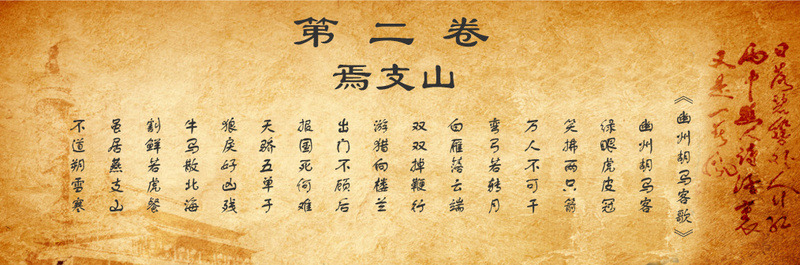 第二卷
焉支山
日落碧簪外人行红
雨中幽人诗酒里
又是一春风
《幽州胡马客歌》
幽州胡马客
绿眼虎皮冠
笑拂两只箭
万人不可干
弯弓若转月
白雁落云端
双双掉鞭行
游猎向楼兰
出门不顾后
报国死何难
天骄五单于
狼戾好凶残
牛马散北海
割鲜若虎餐
虽居燕支山
不道朔雪寒